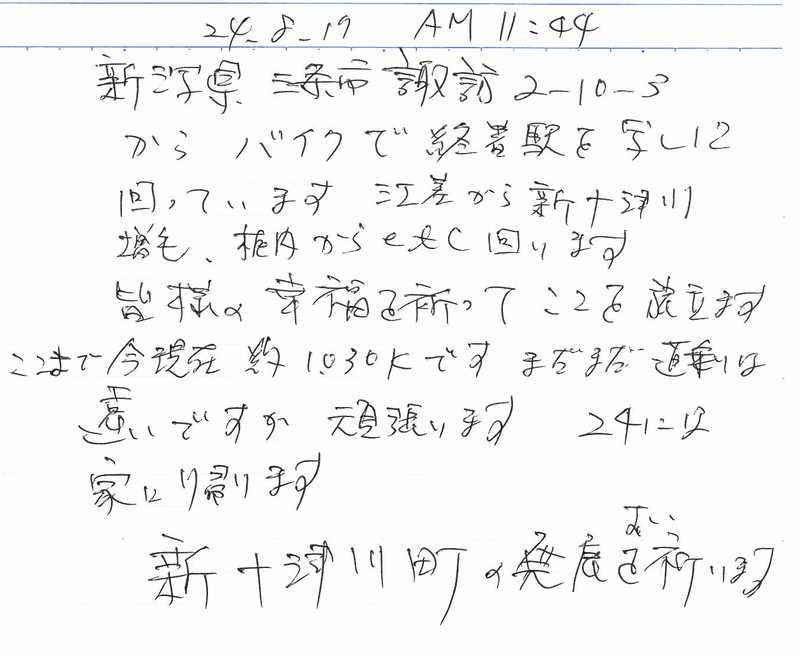 24-8-19 AM 11:44
新潟県 三条市 諏訪 2-10-3
から バイクで 終着駅を 写しに
回っています 江差から 新十津川
増毛、稚内から etc 回ります
皆様の 幸福を祈って ここを 旅立ます
ここまで 今現在 約 1030Kです まだまだ 道乗りは
遠いですが 頑張ります 24には
家に帰ります
新十津川町の発展を祈います